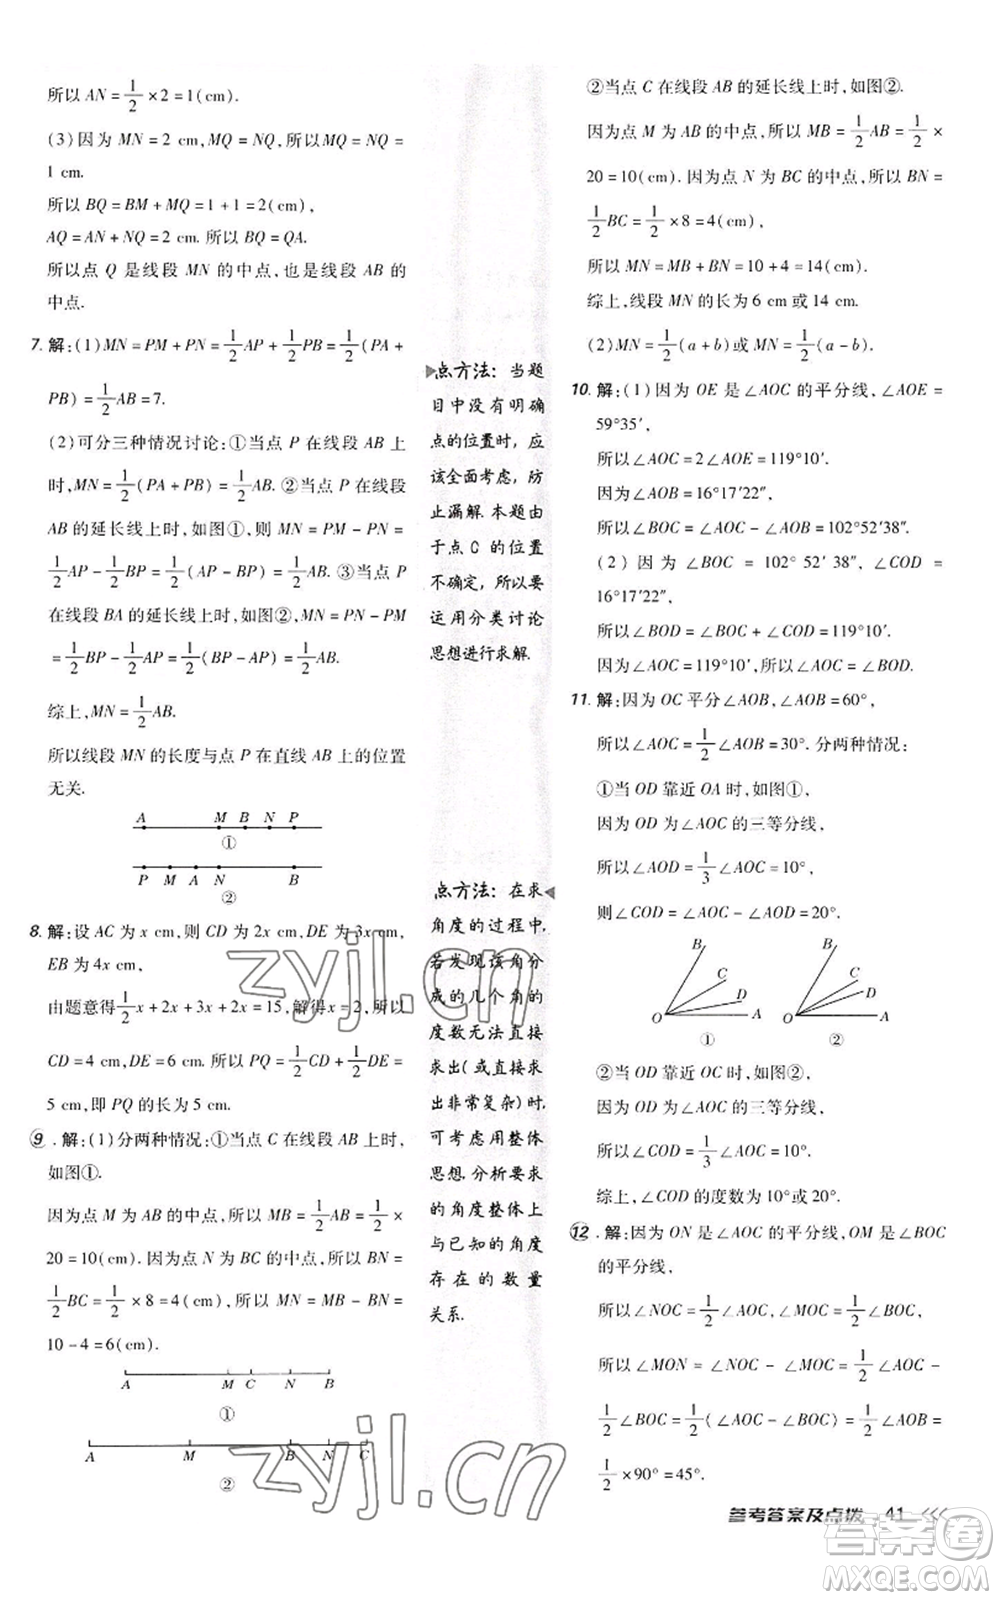 所以 AN = 1/2 × 2 = 1(cm).
(3)因为 MN = 2 cm, MQ = NQ, 所以 MQ =
1 cm.
所以 BQ = BM + MQ = 1 + 1 = 2(cm),
AQ = AN + NQ = 2 cm. 所以 BQ = QA.
所以点 Q 是线段 MN 的中点,也是线段 AB 的
中点.
7. 解:(1)MN = PM + PN = 1/2 AP + 1/2 PB = 1/2 (PA +
PB) = 1/2 AB = 7.
(2)可分三种情况讨论:①当点 P 在线段 AB 上
时, MN = 1/2 (PA + PB) = 1/2 AB. ②当点 P 在线段
AB 的延长线上时,如图①,则 MN = PM - PN =
1/2 AP - 1/2 BP = 1/2 (AP - BP) = 1/2 AB. ③当点 P
在线段 BA 的延长线上时,如图②, MN = PN - PM
= 1/2 BP - 1/2 AP = 1/2 (BP - AP) = 1/2 AB.
综上, MN = 1/2 AB.
所以线段 MN 的长度与点 P 在直线 AB 上的位置
无关.
A M B N P
①
P M A N B
②
8. 解:设 AC 为 x cm,则 CD 为 2x cm, DE 为 3x cm,
EB 为 4x cm,
由题意得 1/2 x + 2x + 3x + 2x = 15,解得 x = 2,所以
CD = 4 cm, DE = 6 cm. 所以 PQ = 1/2 CD + 1/2 DE =
5 cm,即 PQ 的长为 5 cm.
9. 解:(1)分两种情况:①当点 C 在线段 AB 上时,
如图①.
因为点 M 为 AB 的中点,所以 MB = 1/2 AB = 1/2 ×
20 = 10(cm). 因为点 N 为 BC 的中点,所以 BN =
1/2 BC = 1/2 × 8 = 4(cm),所以 MN = MB - BN =
10 - 4 = 6(cm).
A M C N B
①
A M B N C
②
点方法:当题
目中没有明确
点的位置时,应
该全面考虑,防
止漏解.本题由
于点 C 的位置
不确定,所以要
运用分类讨论
思想进行求解.
点方法:在求
角度的过程中,
若发现该角分
成的几个角的
度数无法直接
求出(或直接求
出非常复杂)时,
可考虑用整体
思想,分析要求
的角度整体上
与已知的角度
存在的数量
关系.
②当点 C 在线段 AB 的延长线上时,如图②.
因为点 M 为 AB 的中点,所以 MB = 1/2 AB = 1/2 ×
20 = 10(cm). 因为点 N 为 BC 的中点,所以 BN =
1/2 BC = 1/2 × 8 = 4(cm),
所以 MN = MB + BN = 10 + 4 = 14(cm).
综上,线段 MN 的长为 6 cm 或 14 cm.
(2)MN = 1/2 (a + b)或 MN = 1/2 (a - b).
10. 解:(1)因为 OE 是∠AOC 的平分线,∠AOE =
59°35′,
所以∠AOC = 2∠AOE = 119°10′.
因为∠AOB = 16°17′22″,
所以∠BOC = ∠AOC - ∠AOB = 102°52′38″.
(2)因为∠BOC = 102°52′38″,∠COD =
16°17′22″,
所以∠BOD = ∠BOC + ∠COD = 119°10′.
因为∠AOC = 119°10′,所以∠AOC = ∠BOD.
11. 解:因为 OC 平分∠AOB,∠AOB = 60°,
所以∠AOC = 1/2 ∠AOB = 30°. 分两种情况:
①当 OD 靠近 OA 时,如图①,
因为 OD 为∠AOC 的三等分线,
所以∠AOD = 1/3 ∠AOC = 10°,
则∠COD = ∠AOC - ∠AOD = 20°.
B C D O A
①
B C D O A
②
②当 OD 靠近 OC 时,如图②,
因为 OD 为∠AOC 的三等分线,
所以∠COD = 1/3 ∠AOC = 10°.
综上,∠COD 的度数为 10°或 20°.
12. 解:因为 ON 是∠AOC 的平分线, OM 是∠BOC
的平分线,
所以∠NOC = 1/2 ∠AOC,∠MOC = 1/2 ∠BOC,
所以∠MON = ∠NOC - ∠MOC = 1/2 ∠AOC -
1/2 ∠BOC = 1/2 (∠AOC - ∠BOC) = 1/2 ∠AOB =
1/2 × 90° = 45°.
参考答案及点拨 41
zyjl.cn
zyjl.cn
答案圈
MXQE.COM